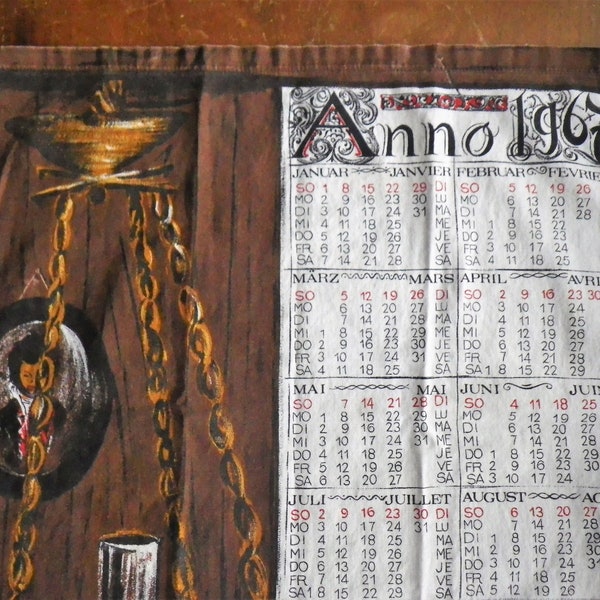 Anno 1967
JANUAR JANVIER
SO 1 8 15 22 29 DI
MO 2 9 16 23 30 LU
DI 3 10 17 24 31 MA
MI 4 11 18 25 ME
DO 5 12 19 26 JE
FR 6 13 20 27 VE
SA 7 14 21 28 SA
FEBRUAR FEVRIE
SO 5 12 19 26
MO 6 13 20 27
DI 7 14 21 28
MI 1 8 15 22
DO 2 9 16 23
FR 3 10 17 24
SA 4 11 18 25
MÄRZ MARS
SO 5 12 19 26 DI
MO 6 13 20 27 LU
DI 7 14 21 28 MA
MI 1 8 15 22 29 ME
DO 2 9 16 23 30 JE
FR 3 10 17 24 31 VE
SA 4 11 18 25 SA
APRIL AVRI
SO 2 9 16 23 30
MO 3 10 17 24
DI 4 11 18 25
MI 5 12 19 26
DO 6 13 20 27
FR 7 14 21 28
SA 1 8 15 22 29
MAI MAI
SO 7 14 21 28 DI
MO 1 8 15 22 29 LU
DI 2 9 16 23 30 MA
MI 3 10 17 24 31 ME
DO 4 11 18 25 JE
FR 5 12 19 26 VE
SA 6 13 20 27 SA
JUNI JUIN
SO 4 11 18 25
MO 5 12 19 26
DI 6 13 20 27
MI 7 14 21 28
DO 1 8 15 22 29
FR 2 9 16 23 30
SA 3 10 17 24
JULI JUILLET
SO 2 9 16 23 30 DI
MO 3 10 17 24 31 LU
DI 4 11 18 25 MA
MI 5 12 19 26 ME
DO 6 13 20 27 JE
FR 7 14 21 28 VE
SA 1 8 15 22 29 SA
AUGUST AO
SO 6 13 20 27
MO 7 14 21 28
DI 1 8 15 22 29
MI 2 9 16 23 30
DO 3 10 17 24 31
FR 4 11 18 25
SA 5 12 19 26